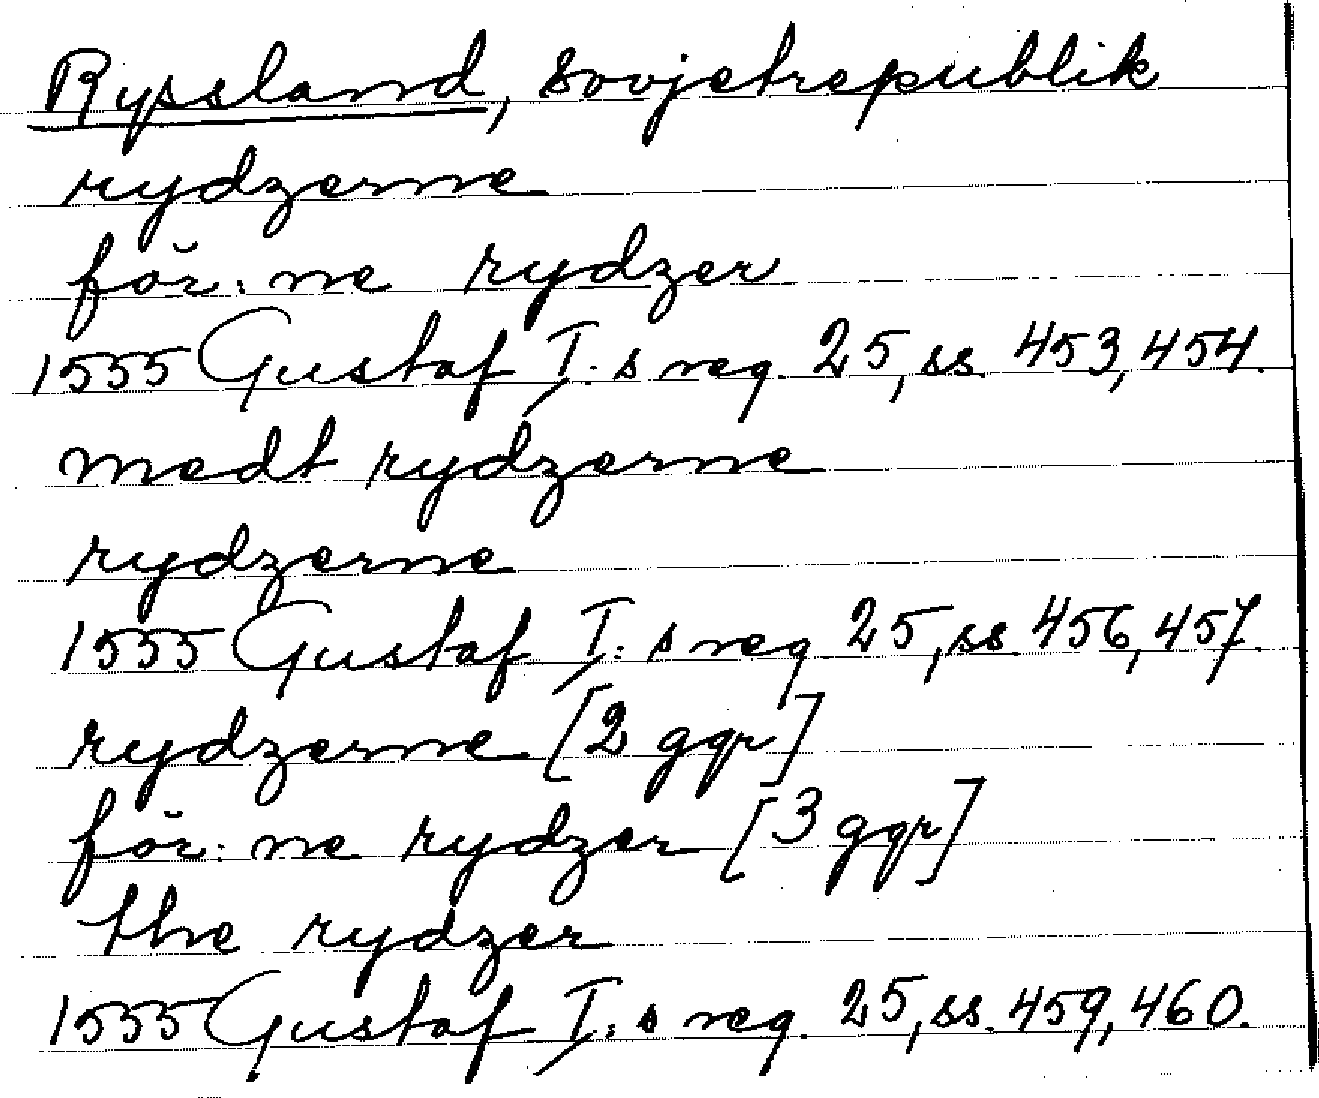 Ryssland, Sovjetrepublik
rydzerne
för:ne rydzer
1555 Gustaf I:s reg. 25, ss. 453, 454.
medt rydzerne
rydzerne
1555 Gustaf I:s reg. 25, ss 456, 457.
rydzerne [2 ggr]
för:ne rydzer [3 ggr]
the rydzer
1555 Gustaf I:s reg. 25, ss. 459, 460.